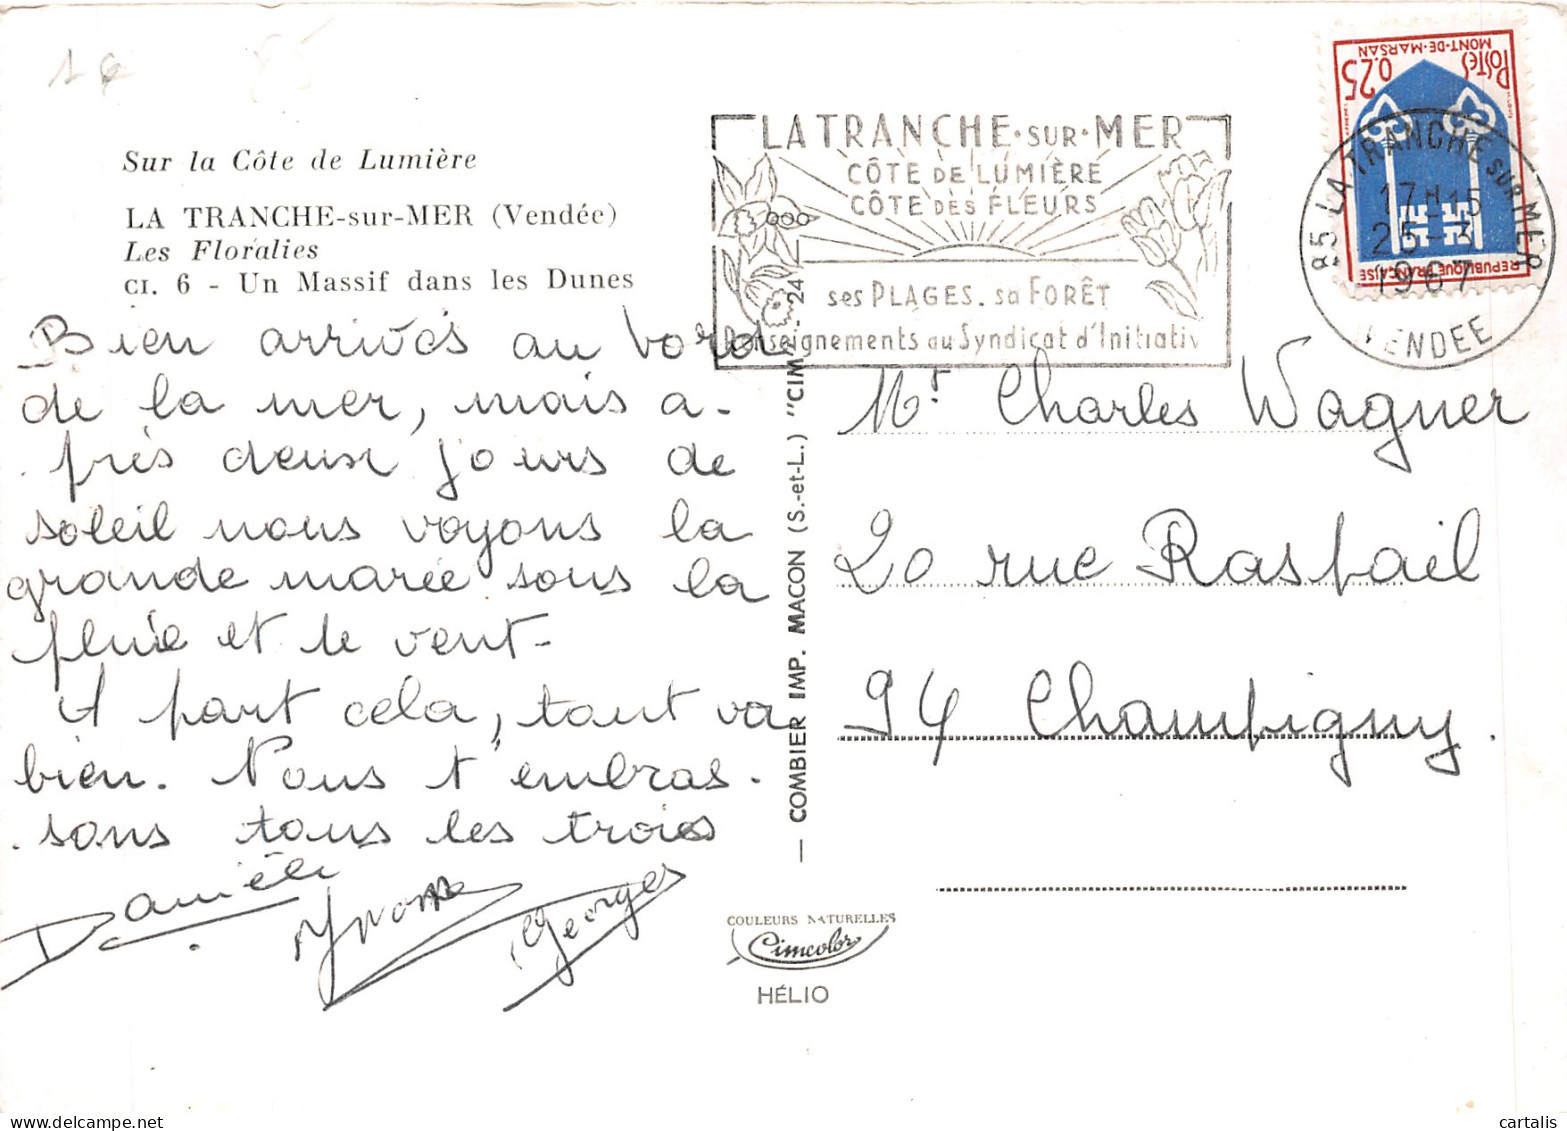 16
Sur la Côte de Lumière
LA TRANCHE-sur-MER (Vendée)
Les Floralies
CI. 6 - Un Massif dans les Dunes
Bien arrivés au bord
de la mer, mais a-
près deux jours de
soleil nous voyons la
grande marée sous la
pluie et le vent-
A part cela, tout va
bien. Nous t'embras-
sons tous les trois
Danièle
Yvonne
Georges
COMBIER IMP. MACON (S.-et-L.) "CIM" - 24
LA TRANCHE-SUR-MER
CÔTE DE LUMIÈRE
CÔTE DES FLEURS
ses PLAGES. sa FORÊT
Renseignements au Syndicat d'Initiativ
POSTES 0,25
MONT-DE-MARSAN
REPUBLIQUE FRANÇAISE
85 LA TRANCHE SUR MER
17H15
25-3
1967
VENDEE
Mr. Charles Wagner
20 rue Raspail
94 Champigny.
COULEURS NATURELLES
Cimcolor
HÉLIO
cartalis